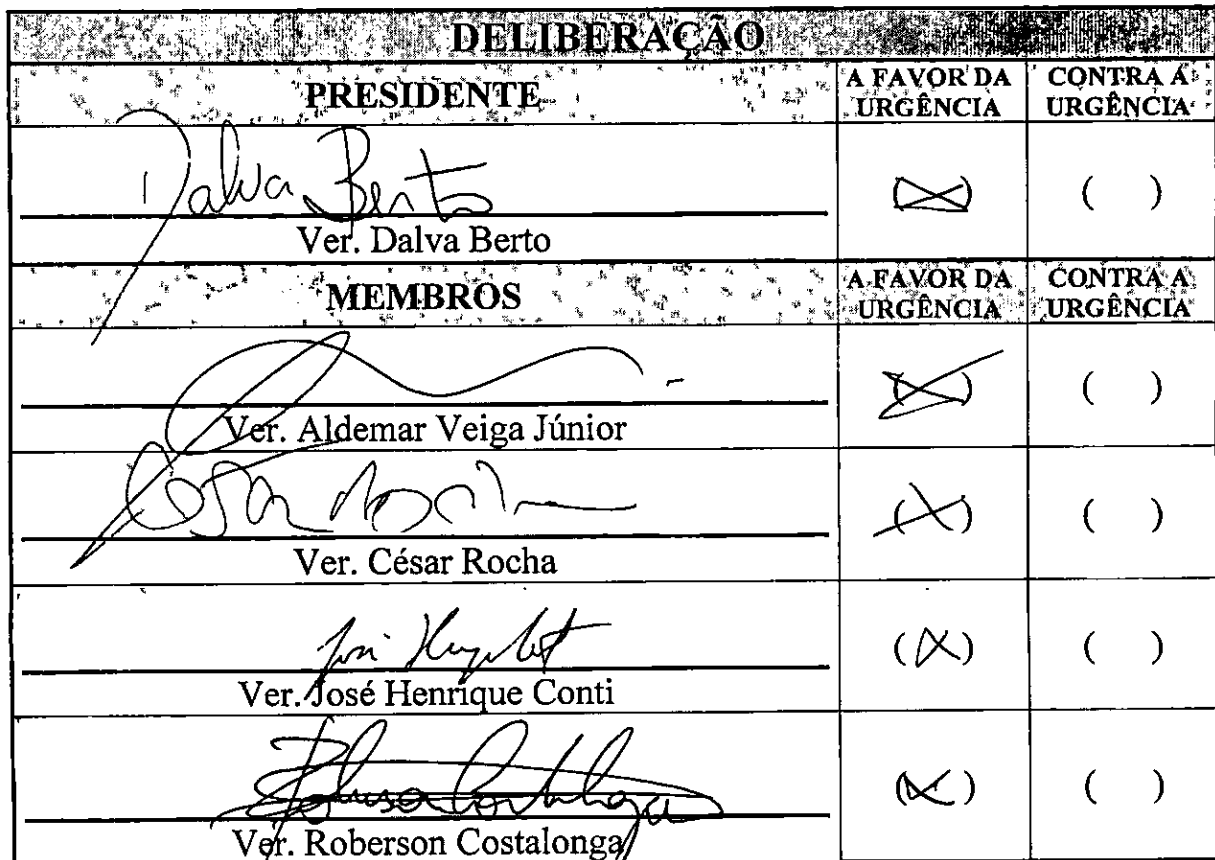 DELIBERAÇÃO
PRESIDENTE A FAVOR DA URGÊNCIA CONTRA A URGÊNCIA
Dalva Berto (X) ( )
Ver. Dalva Berto
MEMBROS A FAVOR DA URGÊNCIA CONTRA A URGÊNCIA
(X) ( )
Ver. Aldemar Veiga Júnior
(X) ( )
Ver. César Rocha
(X) ( )
Ver. José Henrique Conti
(X) ( )
Ver. Roberson Costalonga